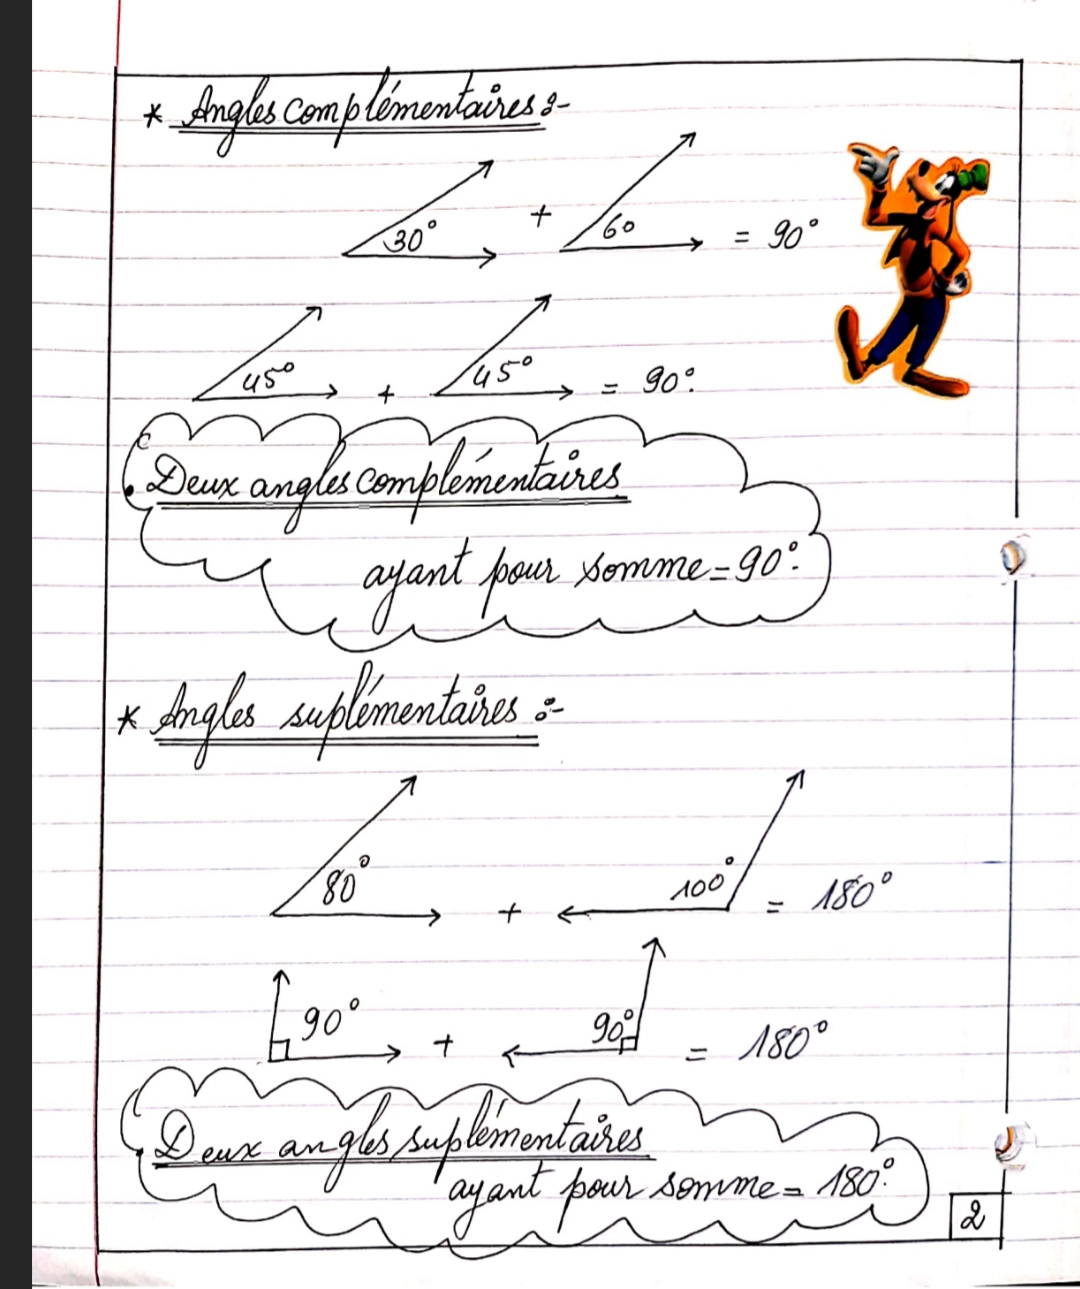 * Angles complémentaires :-
30° + 60 = 90°
45° + 45° = 90°.
. Deux angles complémentaires
ayant pour somme = 90°.
* Angles suplémentaires :-
80° + 100° = 180°
90° + 90° = 180°
. Deux angles suplémentaires
ayant pour somme = 180°.
2